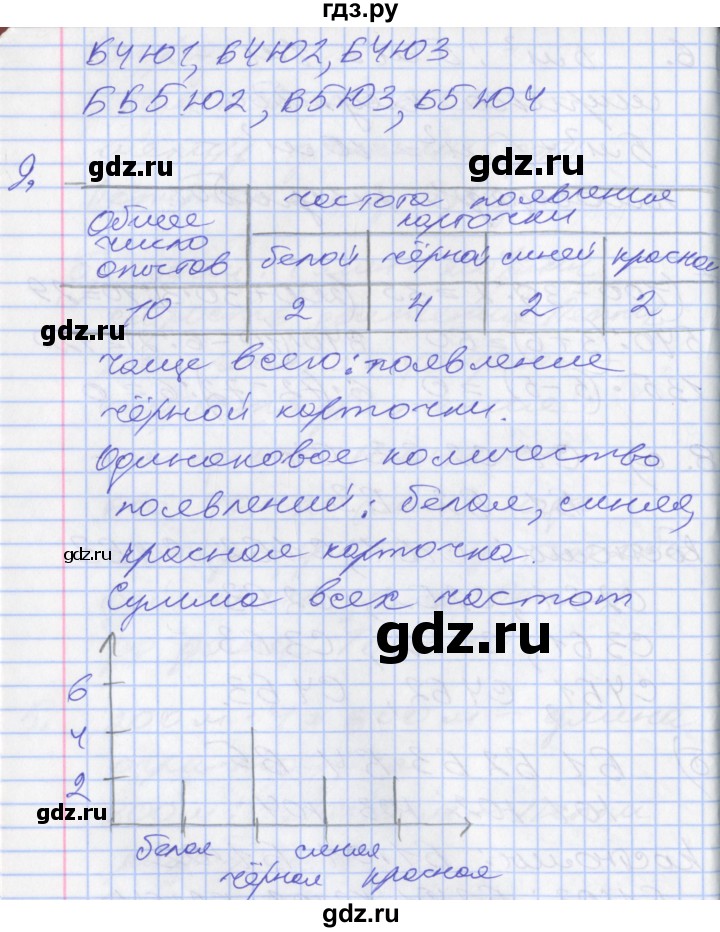 гдз.ру
Б4Ю1, Б4Ю2, Б4Ю3
ББ5Ю2, В5Ю3, Б5Ю4
gdz.ru
9,
gdz.ru
частота появления
карточки
Общее
число
опостов
белой чёрной синей красной
10 2 4 2 2
gdz.ru
чаще всего: появление
чёрной карточки.
Одинаковое количество
появлений: белая, синяя,
gdz.ru
красная карточка.
Сумма всех частот
gdz.ru
6
4
2
gdz.ru
белая синяя
чёрная красная
gdz.ru